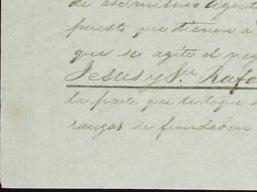 de ese mismo
puesto que tienen a
que se agite el neg
Jesus y Sr. Rafa
la parte que le toque d
ranzas se fundaban